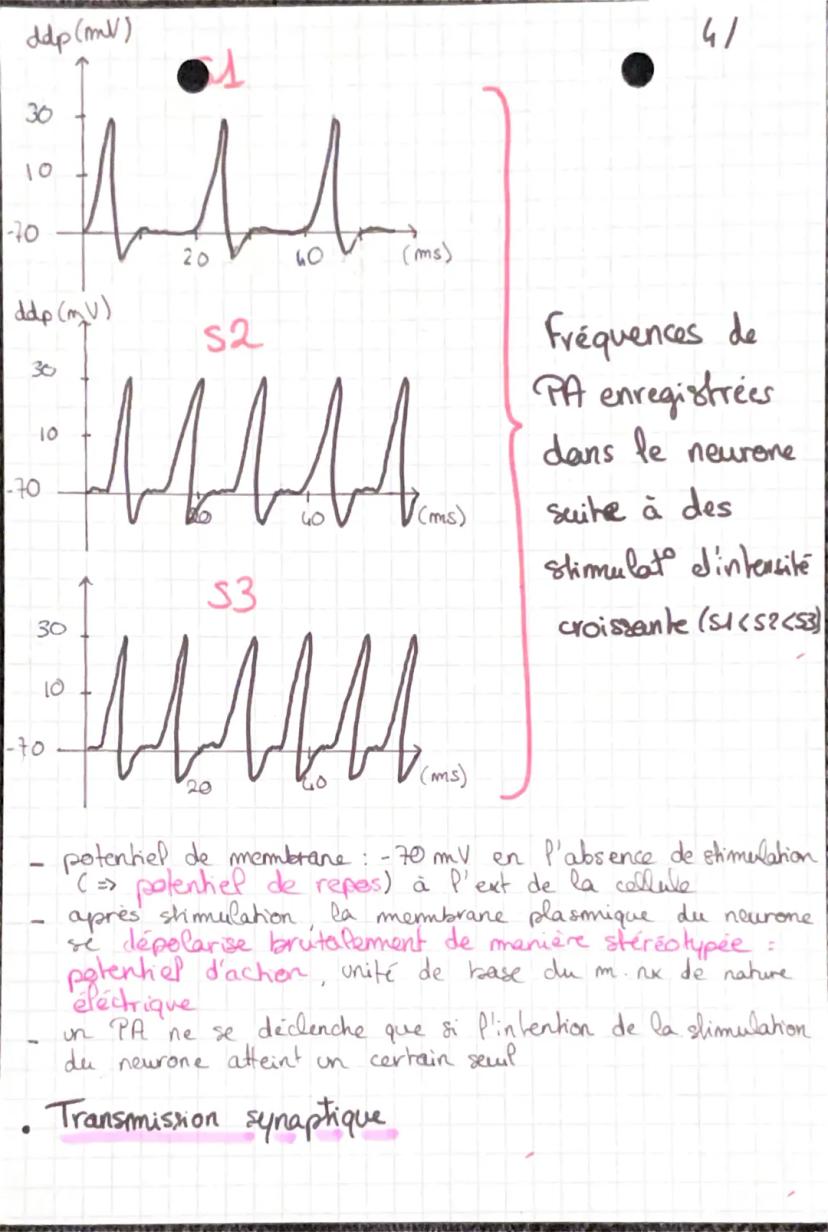 4/
ddp (mV)
S1
30
10
-70
20
40
(ms)
ddp (mV)
S2
30
10
-70
20
40
(ms)
S3
30
10
-70
20
40
(ms)
Fréquences de
PA enregistrées
dans le neurone
suite à des
stimulat° d'intensité
croissante (S1<S2<S3)
- potentiel de membrane : -70 mV en l'absence de stimulation
(=> potentiel de repos) à l'ext de la cellule
- après stimulation, la membrane plasmique du neurone
se dépolarise brutalement de manière stéréotypée :
potentiel d'action, unité de base du m. nx de nature
éléctrique
- un PA ne se déclenche que si l'intention de la stimulation
du neurone atteint un certain seuil
• Transmission synaptique